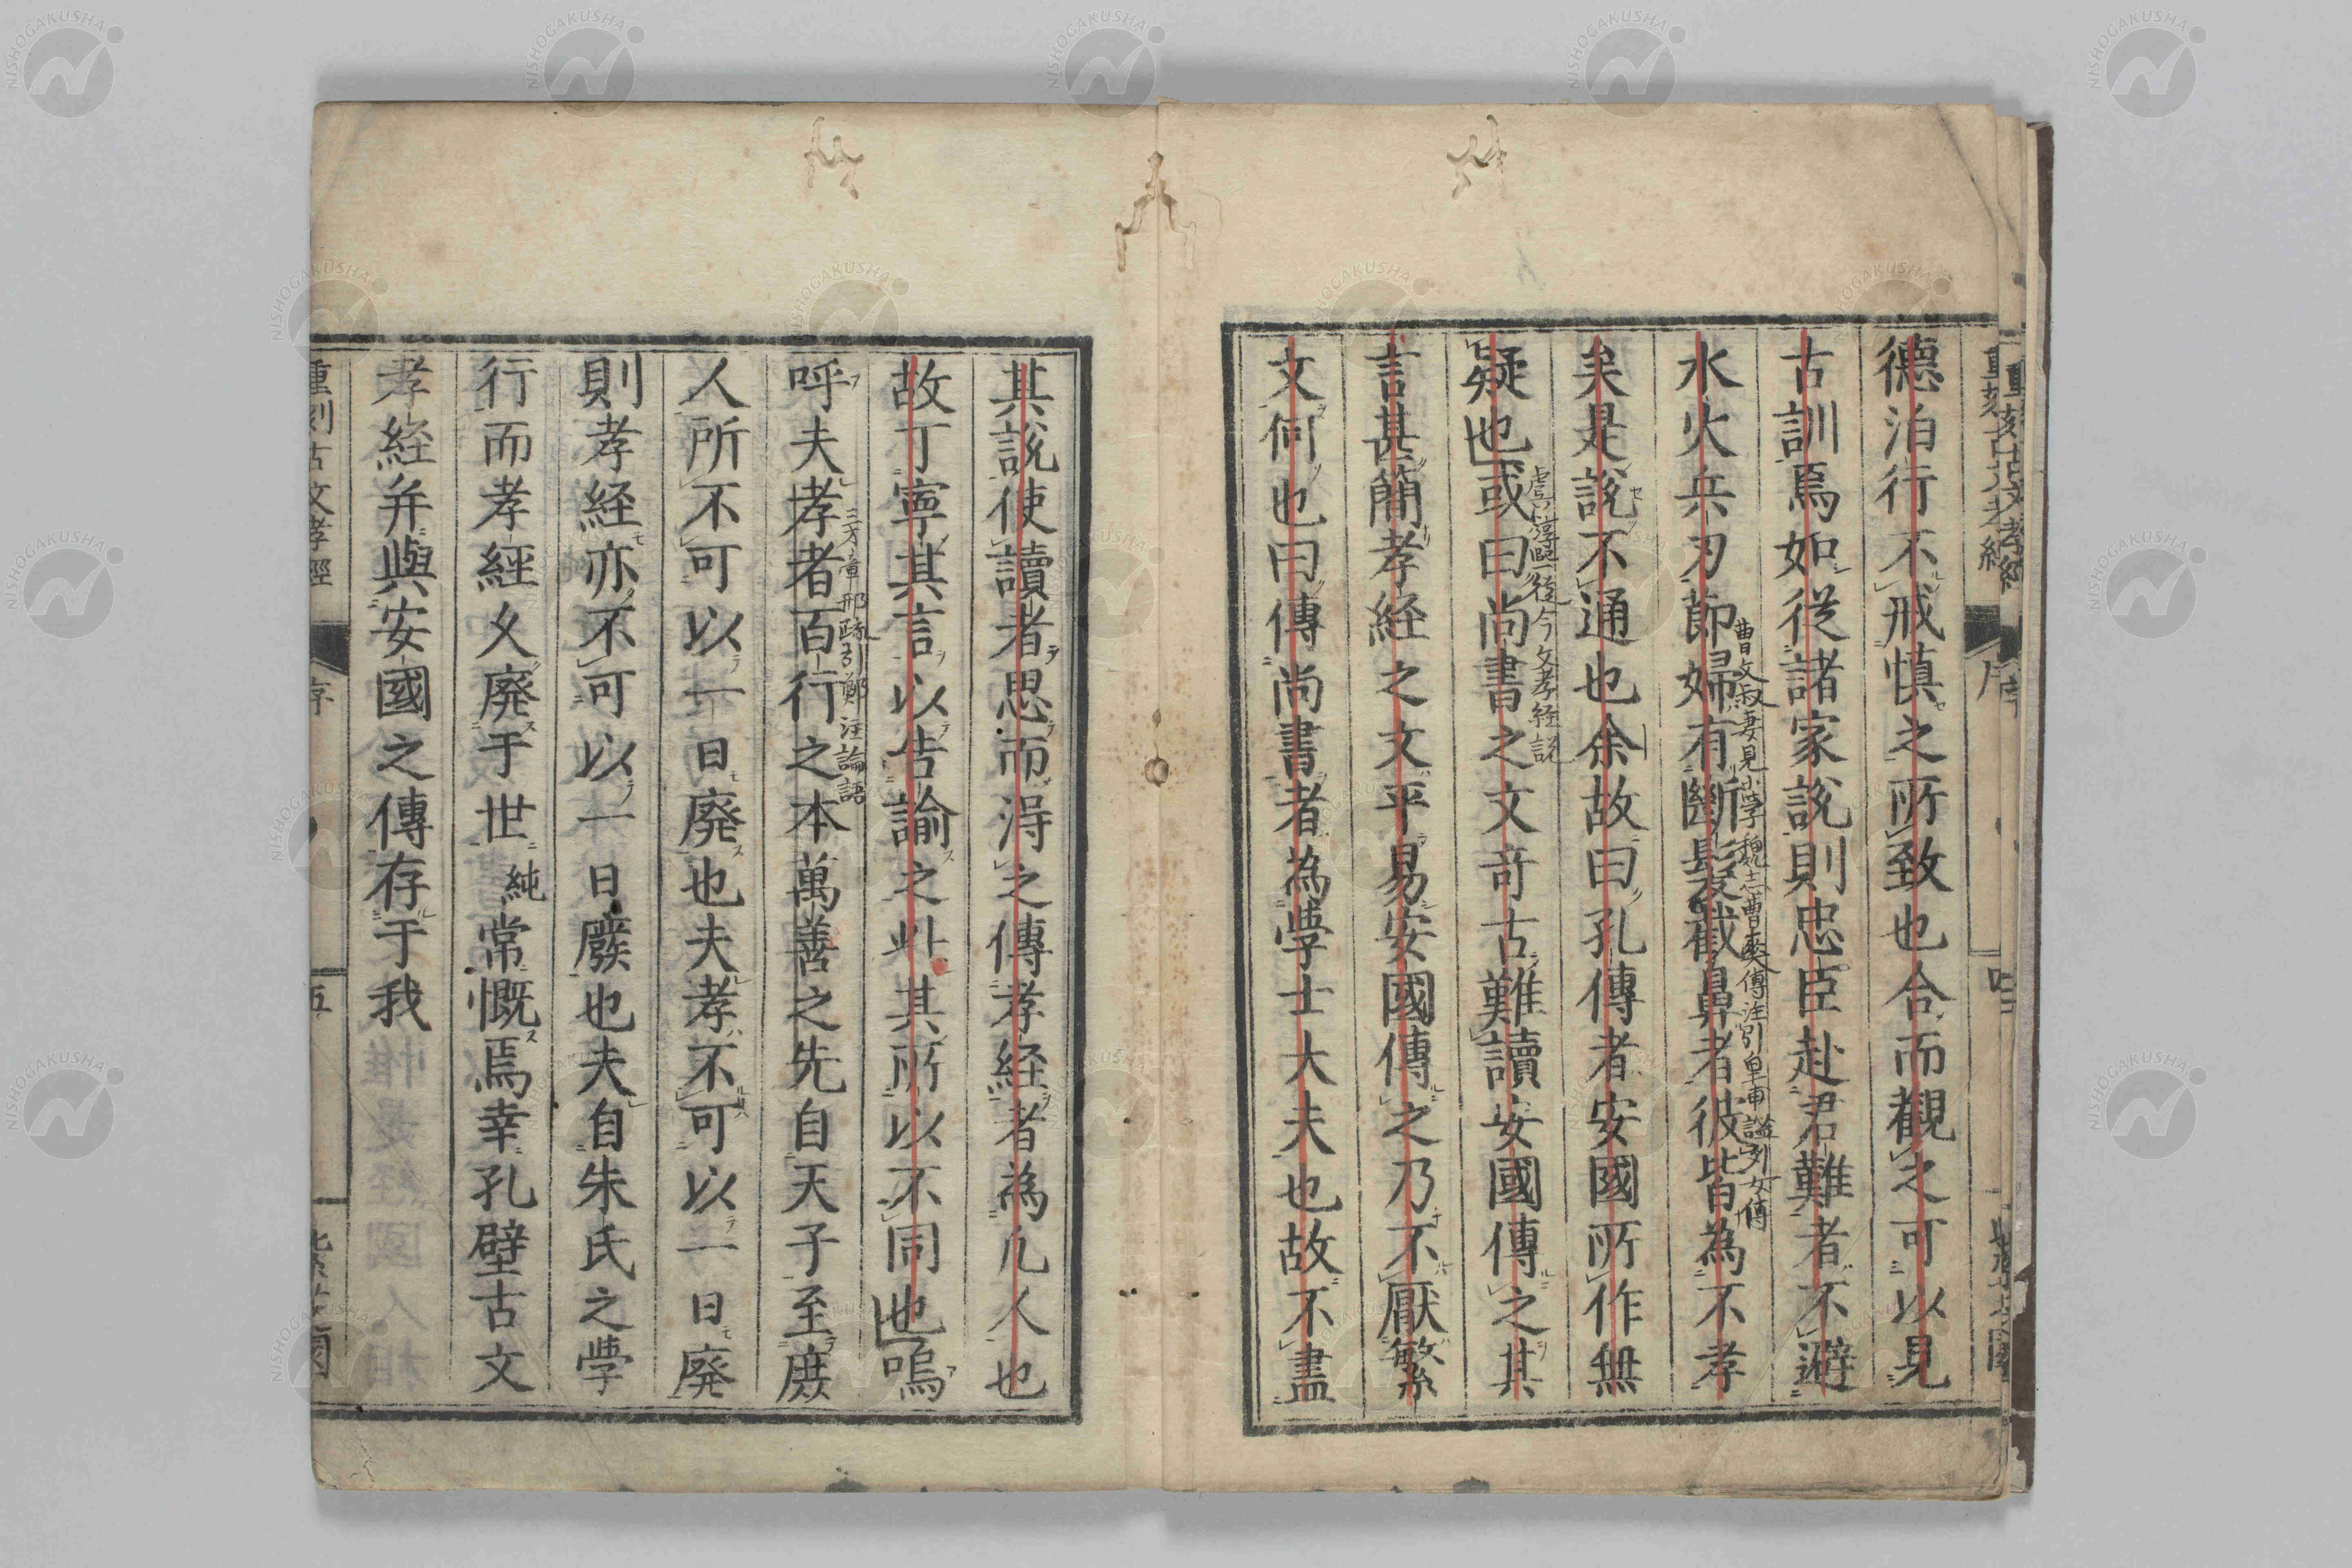 重刻古文孝經
序
四
德泊行不戒慎之所致也合而觀之可以見
古訓焉如從諸家說則忠臣赴君難者不避
水火兵刃節婦有斷髮截鼻者彼皆為不孝
曹文叔妻見小學魏志曹爽傳注引皇甫謐列女傳
矣是說不通也余故曰孔傳者安國所作無
疑也或曰尚書之文奇古難讀安國傳之其
淳熙後今文孝経説
言甚簡孝経之文平易安國傳之乃不厭繁
文何也曰傳尚書者為學士大夫也故不盡
其說使讀者思而得之傳孝経者為凡人也
故丁寧其言以告諭之此其所以不同也嗚
呼夫孝者百行之本萬善之先自天子至庶
三才章邢疏引鄭注論語
人所不可以一日廢也夫孝不可以一日廢
則孝経亦不可以一日廢也夫自朱氏之學
行而孝經久廢于世純常慨焉幸孔壁古文
孝経并與安國之傳存于我
重刻古文孝經
序
五
NISHOGAKUSHA